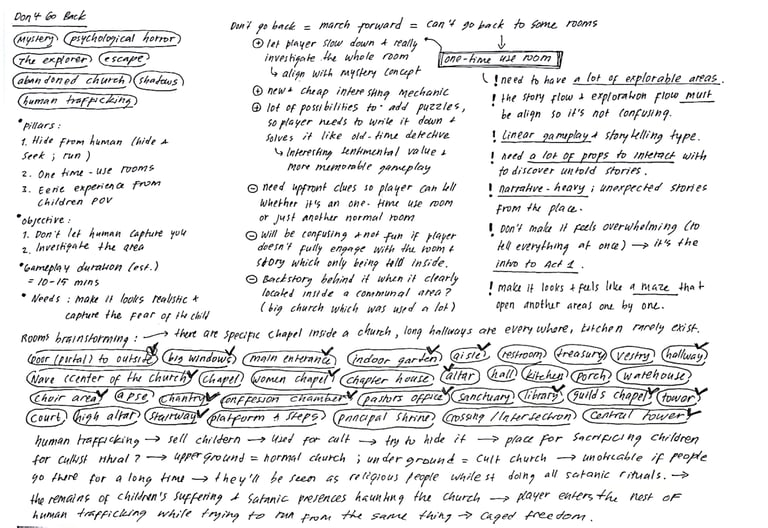 Don't Go Back
Mystery psychological horror
The explorer escape
abandoned church shadows
human trafficking
• Pillars :
1. Hide from human (hide & seek ; run)
2. One time - use rooms
3. Eerie experience from children POV
• Objective :
1. Don't let human capture you
2. Investigate the area
• Gameplay duration (est.)
= 10-15 mins
• Needs : make it looks realistic & capture the fear of the child
Don't go back = march forward = can't go back to some rooms
⊕ let player slow down & really
investigate the whole room
↳ align with mystery concept
⊕ new & cheap interesting mechanic
⊕ lot of possibilities to add puzzles,
so player needs to write it down &
solves it like old-time detective
↳ Interesting sentimental value &
more memorable gameplay
⊖ need upfront clues so player can tell
whether it's an one-time use room
or just another normal room
⊖ Will be confusing & not fun if player
doesn't fully engage with the room &
story which only being told inside.
⊖ Backstory behind it when it clearly
located inside a communal area?
(big church which was used a lot)
one-time use room
! need to have a lot of explorable areas.
! the story flow & exploration flow must
be align so it's not confusing.
! Linear gameplay & storytelling type.
! need a lot of props to interact with
to discover untold stories.
! narrative-heavy ; unexpected stories
from the place.
! Don't make it feels overwhelming (to
tell everything at once) → it's the
intro to Act 1.
! make it looks & feels like a maze that
open another areas one by one.
Rooms brainstorming : → there are specific chapel inside a church, long hallways are everywhere, kitchen rarely exist.
Door (portal) to outside ✓ big windows ✓ main entrance ✓ indoor garden ✓ aisle ✓ restroom treasury vestry hallway ✓
Nave (center of the church) ✓ chapel women chapel ✓ chapter house altar ✓ hall kitchen porch warehouse
choir area ✓ apse chantry ✓ confession chamber ✓ pastors office ✓ sanctuary library ✓ guild's chapel ✓ tower ✓
court high altar stairway ✓ platform & steps principal shrine crossing / intersection central tower ✓
human trafficking → sell childern → used for cult → try to hide it → place for sacrificing children
for cultist ritual? → upperground = normal church ; underground = cult church → unnoticable if people
go there for a long time → they'll be seen as religious people whilest doing all satanic rituals. →
the remains of children's suffering & satanic presences haunting the church → player enters the nest of
human trafficking while trying to run from the same thing → caged freedom.